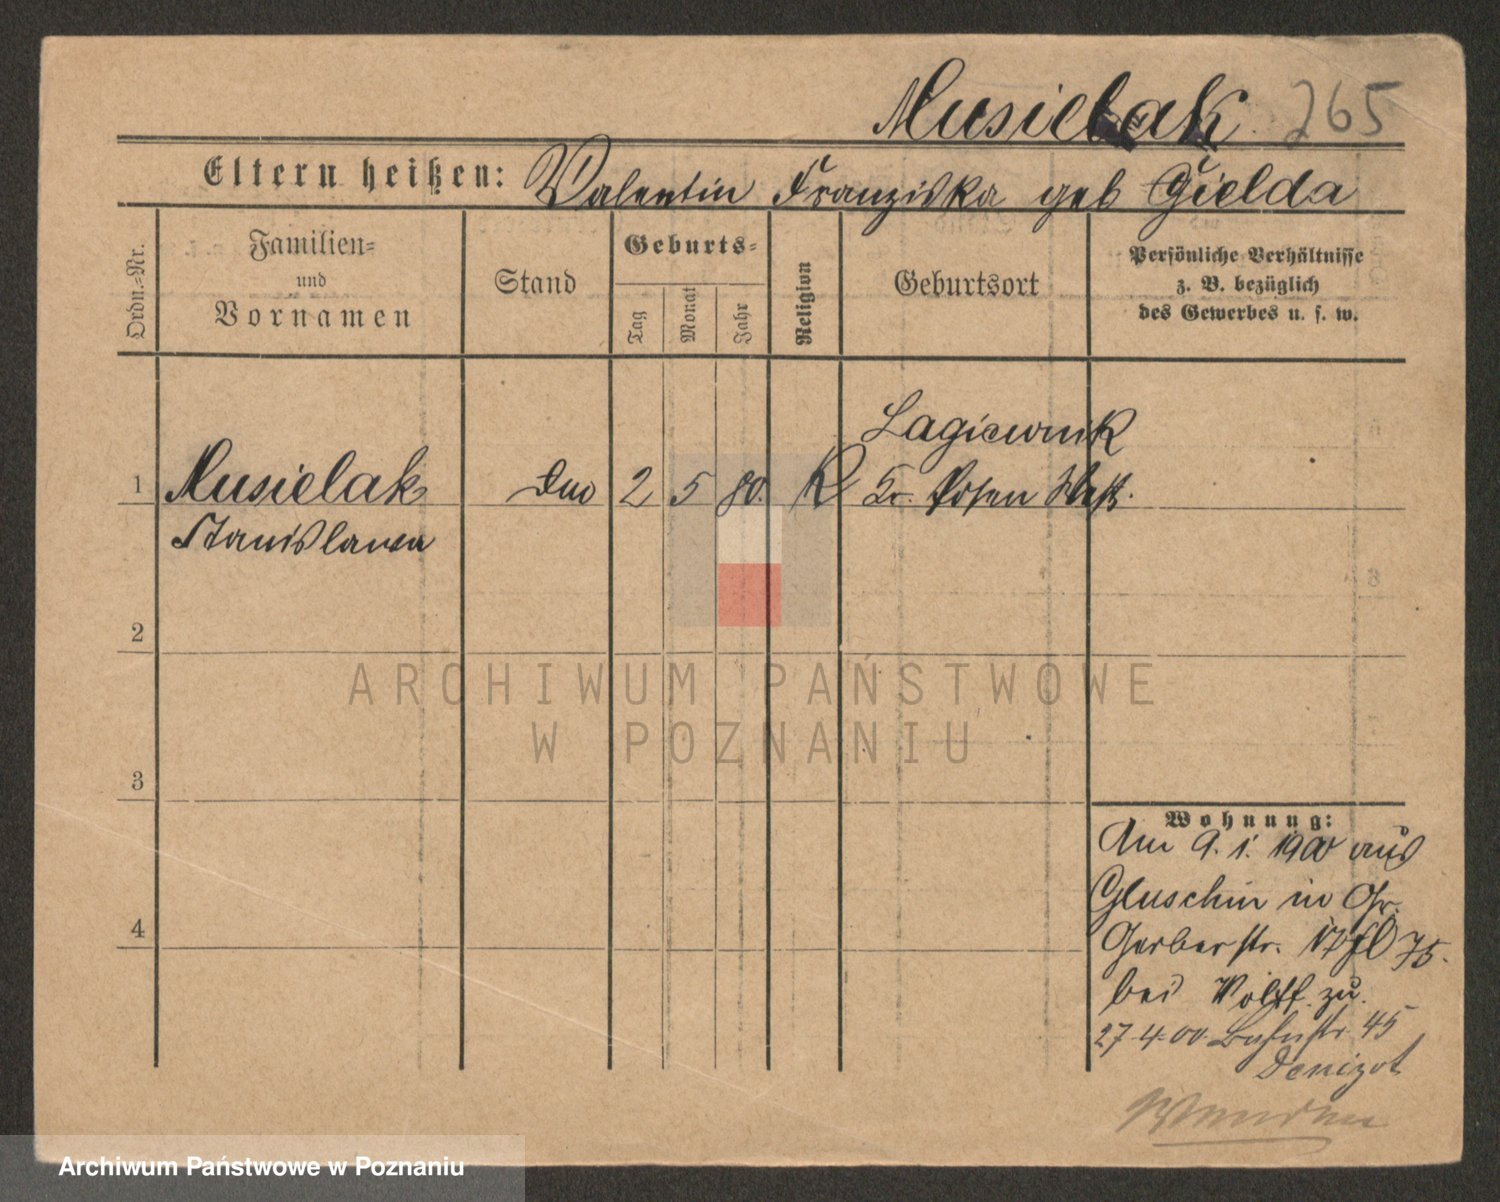 Musielak 265
Eltern heißen: Valentin Franziska geb Gielda
Ordn.-Nr.
Familien-
und
Vornamen
Stand
Geburts-
Tag
Monat
Jahr
Religion
Geburtsort
Persönliche Verhältnisse
z. B. bezüglich
des Gewerbes u. s. w.
Lagiewnik
1 Musielak 2 5 80. K Kr. Posen West.
Stanislawa
2
ARCHIWUM PAŃSTWOWE
W POZNANIU
3
Wohnung:
Am 9. 1. 1900 aus
Gluschin in Gr.
Gerberstr.
bei Wolff. zu.
27 4. 00. 45
Denizot
4
Archiwum Państwowe w Poznaniu